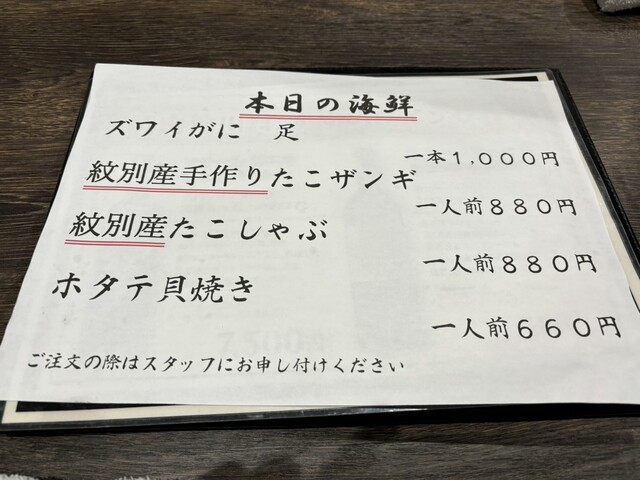 本日の海鮮
ズワイがに 足
一本１,０００円
紋別産手作りたこザンギ
一人前８８０円
紋別産たこしゃぶ
一人前８８０円
ホタテ貝焼き
一人前６６０円
ご注文の際はスタッフにお申し付けください